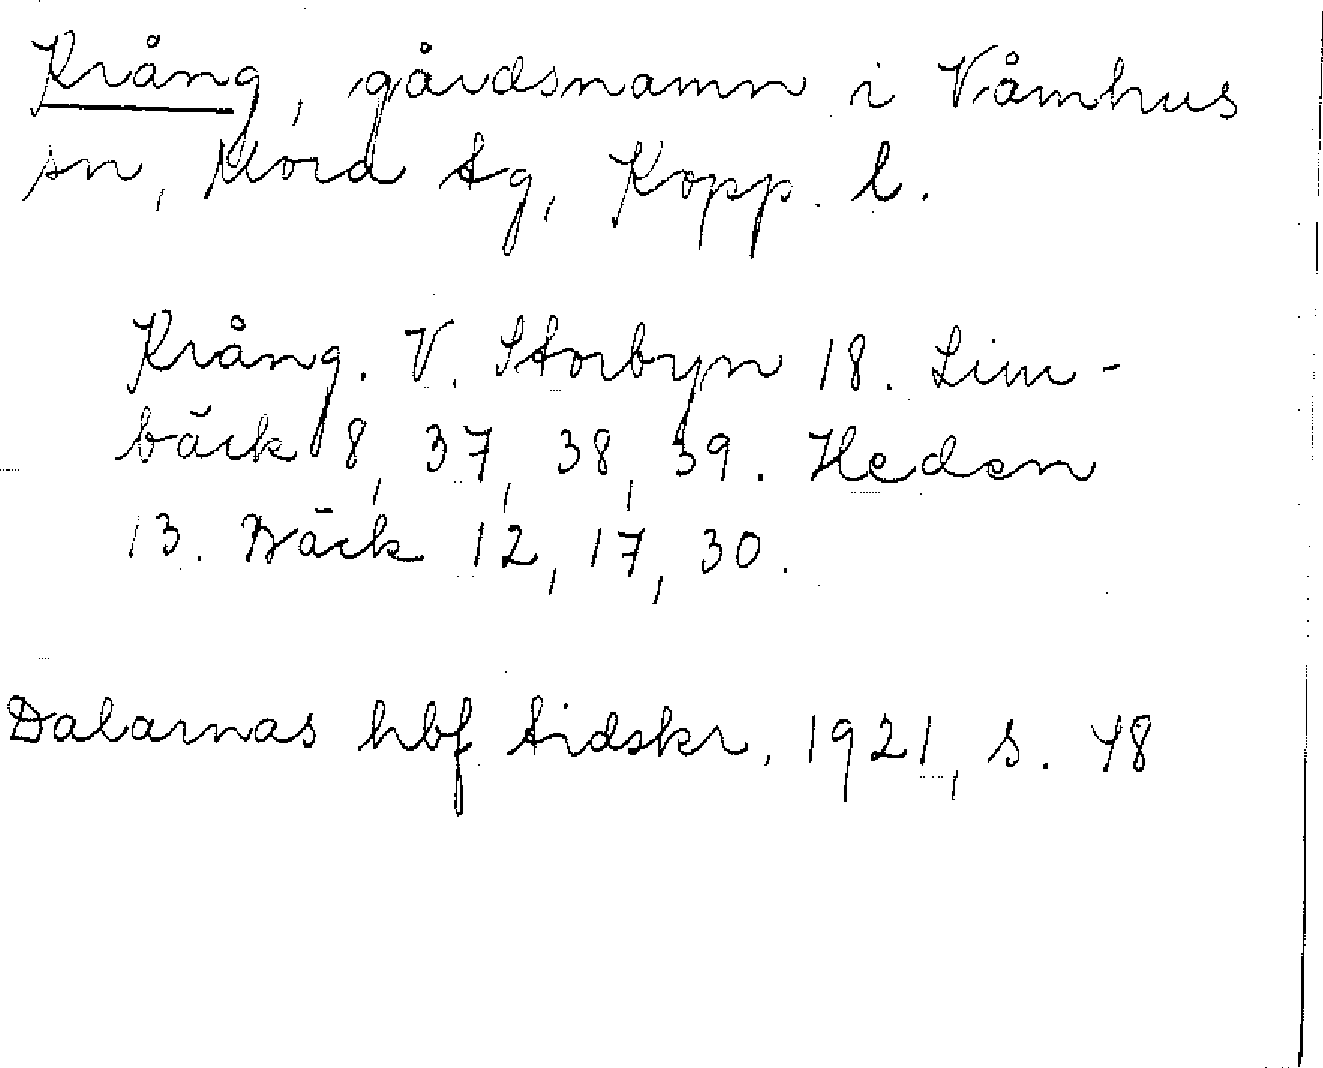 Krång, gårdsnamn i Våmhus
sn, Mora tg, Kopp. l.
Krång. V. Storbyn 18. Lim-
bäck 8, 37, 38, 39. Heden
13. Bäck 12, 17, 30.
Dalarnas hbf. tidskr. 1921, s. 48